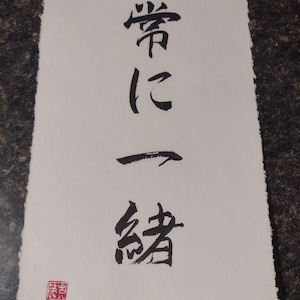 常に一緒